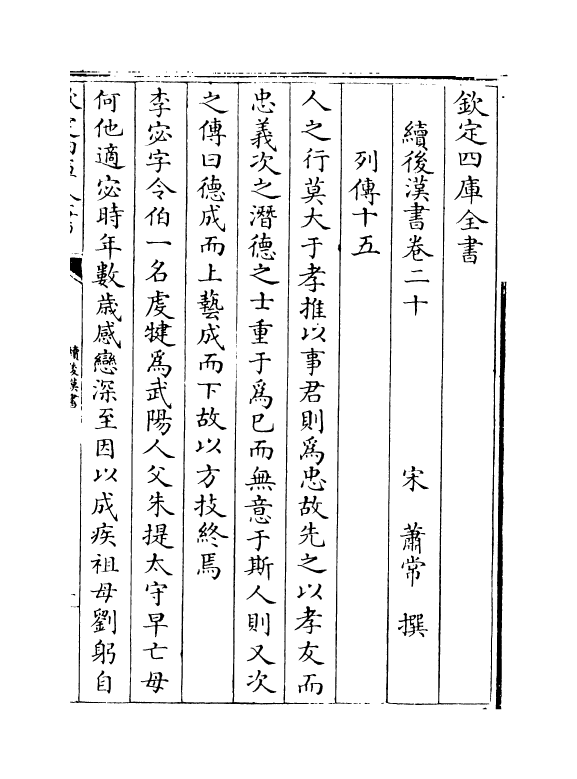 欽定四庫全書
續後漢書卷二十
宋 蕭常 撰
列傳十五
人之行莫大于孝推以事君則爲忠故先之以孝友而
忠義次之潛德之士重于爲已而無意于斯人則又次
之傳曰德成而上藝成而下故以方技終焉
李宓字令伯一名虔犍爲武陽人父朱提太守早亡母
何他適宓時年數歲感戀深至因以成疾祖母劉躬自
續後漢書